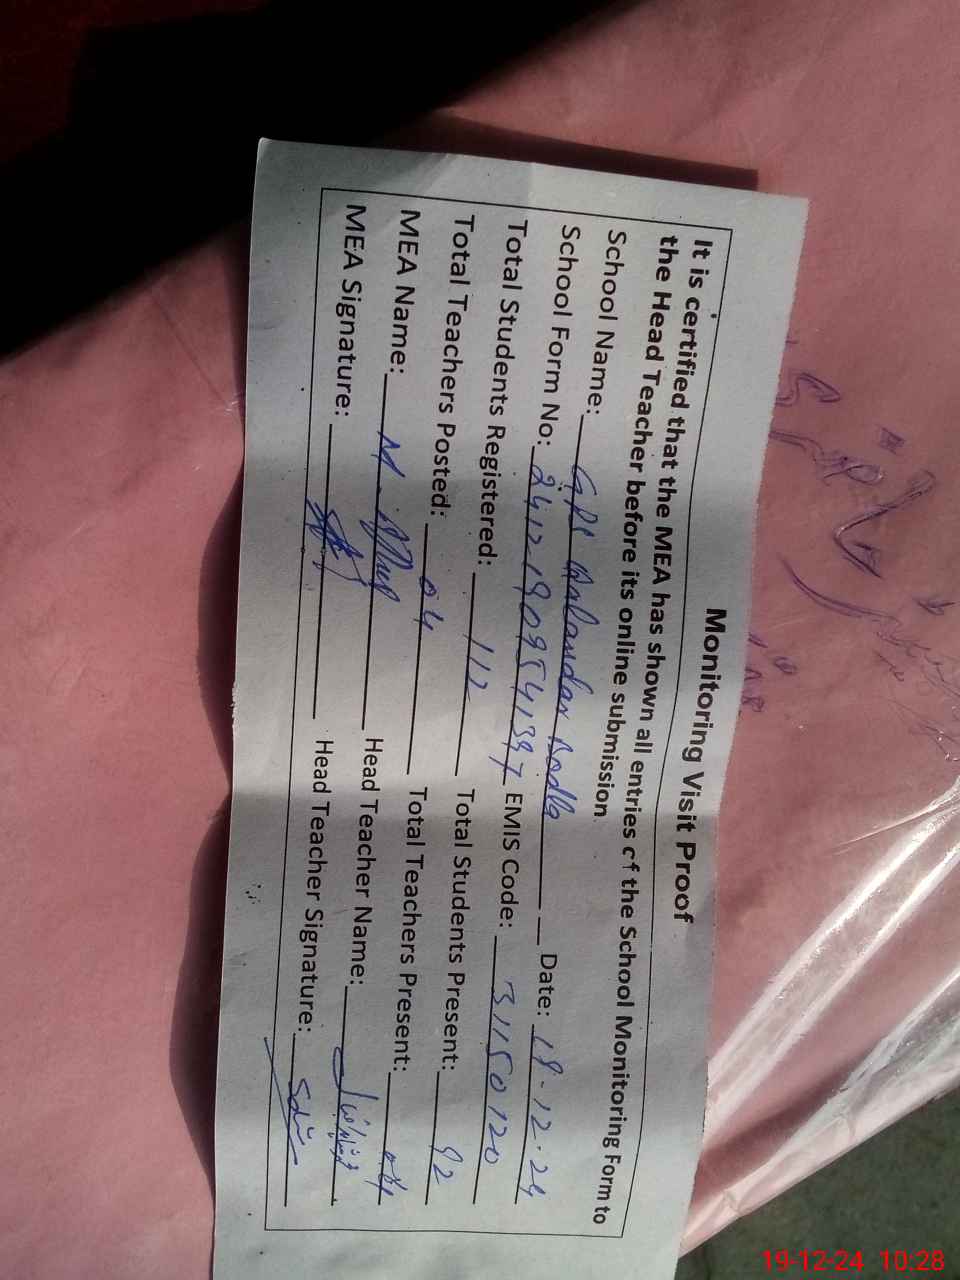 Monitoring Visit Proof
It is certified that the MEA has shown all entries of the School Monitoring Form to
the Head Teacher before its online submission
School Name: GPS Qalandar Date: 19.12.24
School Form No: 24121909541397 EMIS Code: 31150120
Total Students Registered: 112 Total Students Present: 92
Total Teachers Posted: 04 Total Teachers Present: 04
MEA Name: M. Head Teacher Name:
MEA Signature: Head Teacher Signature:
19-12-24 10:28